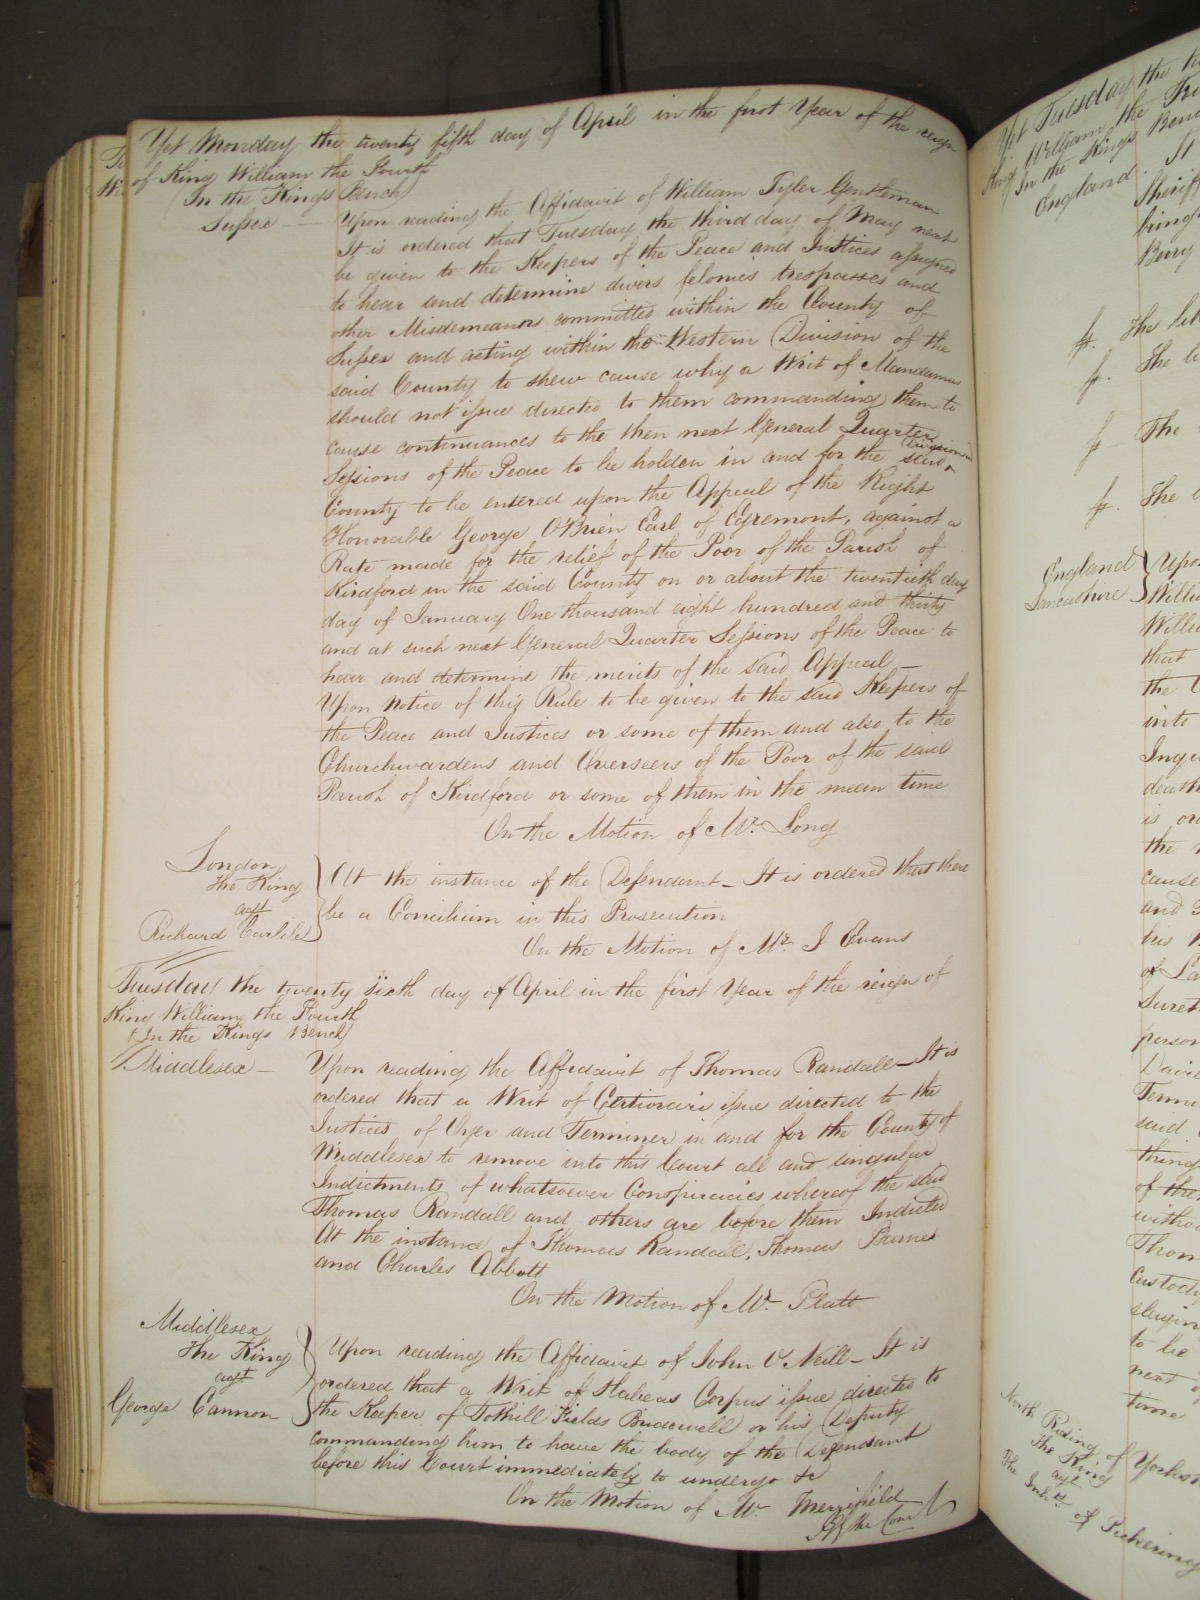 Yet Monday the twenty fifth day of April in the first Year of the reign
of King William the Fourth
(In the Kings Bench)
Sussex — Upon reading the Affidavit of William Tyler Gentleman
It is ordered that Tuesday the third day of May next
be given to the Keepers of the Peace and Justices assigned
to hear and determine divers felonies trespasses and
other Misdemeanors committed within the County of
Sussex and acting within the Western Division of the
said County to shew cause why a Writ of Mandamus
should not issue directed to them commanding them to
cause continuances to the then next General Quarter
Sessions of the Peace to be holden in and for the said
County to be entered upon the Appeal of the Right
Honorable George O'Brien Earl of Egremont, against a
Rate made for the relief of the Poor of the Parish of
Kirdford in the said County on or about the twentieth day
day of January One thousand eight hundred and thirty
and at such next General Quarter Sessions of the Peace to
hear and determine the merits of the said Appeal —
Upon notice of this Rule to be given to the said Keepers of
the Peace and Justices or some of them and also to the
Churchwardens and Overseers of the Poor of the said
Parish of Kirdford or some of them in the mean time
On the Motion of Mr. Long
London
The King
agst
Richard Carlile
At the instance of the Defendant — It is ordered that there
be a Concilium in this Prosecution
On the Motion of Mr. J Evans
Tuesday the twenty sixth day of April in the first Year of the reign of
King William the Fourth
(In the Kings Bench)
Middlesex — Upon reading the Affidavit of Thomas Randall — It is
ordered that a Writ of Certiorari issue directed to the
Justices of Oyer and Terminer in and for the County of
Middlesex to remove into this Court all and singular
Indictments of whatsoever Conspiracies whereof the said
Thomas Randall and others are before them Indicted
At the instance of Thomas Randall, Thomas Barnes
and Charles Abbott
On the Motion of Mr. Platt
Middlesex
The King
agst
George Cannon
Upon reading the Affidavit of John O Neill — It is
ordered that a Writ of Habeas Corpus issue directed to
the Keeper of Tothill Fields Bridewell or his Deputy
commanding him to have the body of the Defendant
before this Court immediately to undergo &c
On the Motion of Mr. Merrifield
By the Court
Yet Tuesday the
King William the
In the Kings
England. It
Sheriff
bring
Berry
fr. The
fr. The
fr The
fr. The
England
Lancashire
Upon
Willia
Willia
that
the
into
Inqu
death
is or
the
cause
and
his
of La
Suret
person
Davi
Termi
said
things
of the
witho
Thom
Custody
to be
next
time
North Riding of Yorksh
The King
agst
The Inhts. of Pickering